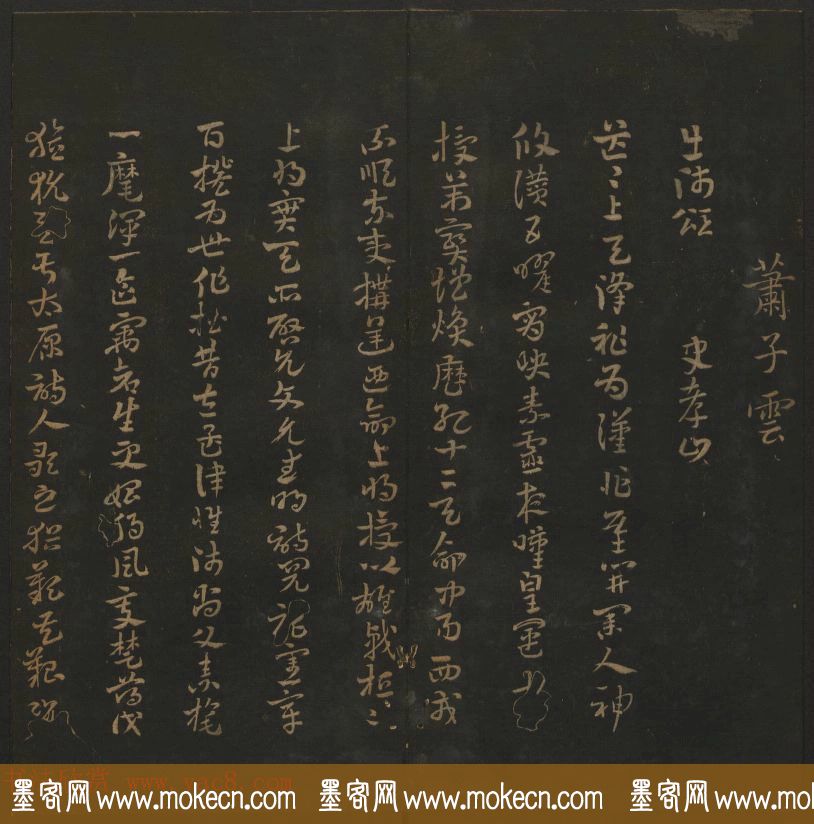 蕭子雲
出師頌 史孝山
茫〻上天降祚為漢作基開業人神
攸讚五曜霄映素靈夜嘆皇運来
授萬寶增煥歷紀十二天命中易西戎
不順東夷構逆西命上將授以雄戟桓〻
上將實天所啓允文允武明詩閱禮憲章
百揆為世作楷昔在孟津惟師尚父素旄
一麾渾一區寓蒼生更始朔風變楚薄伐
獫狁至于太原詩人歌之猶歎其艱況
书法欣赏 www.yac8.com
墨客网 www.mokecn.com 墨客网 www.mokecn.com 墨客网 www.moke